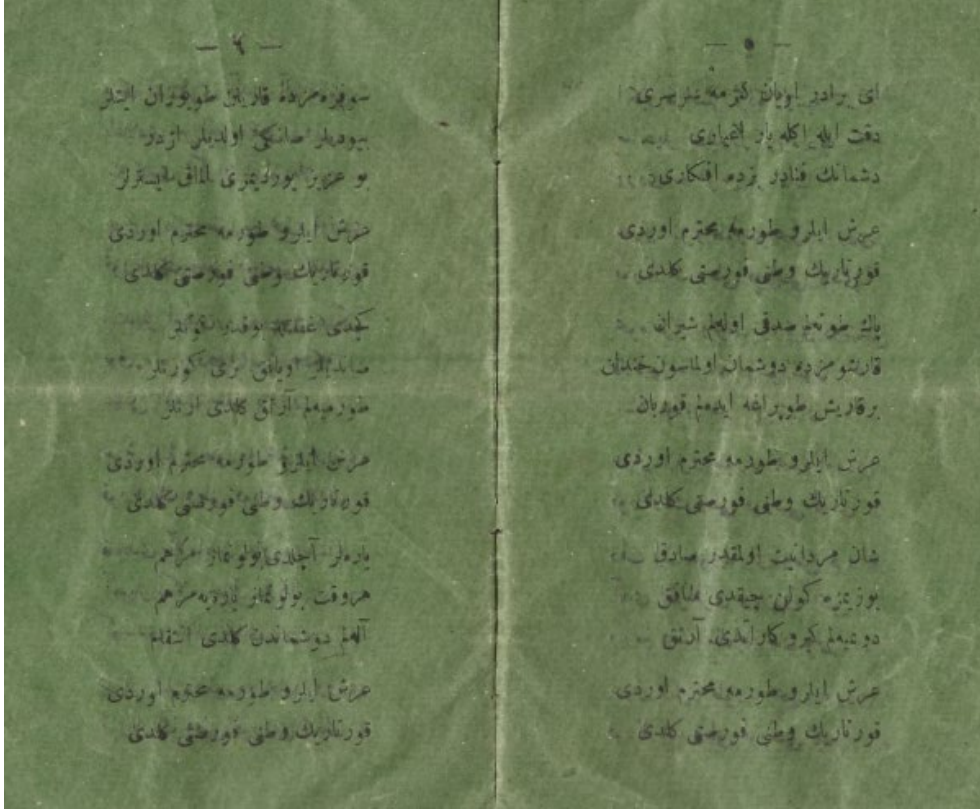 — ٥ —
ای برادر اویان كتزمه سرسری
دقت ایله اكله یار اغیاری
دشمانك فنادر بزده افكاری
عرش ایلرو طورمه محترم اوردی
قورتاریك وطنی فورصتی كلدی
پاك طوتەلم صدقی اولەلم شیران
قارشومزده دوشمان اولماسون خندان
برقاریش طوپراغه ایدەلم قوربان
عرش ایلرو طورمه محترم اوردی
قورتاریك وطنی فورصتی كلدی
شان مردانیت اولمقدر صادق
یوزیمزه كولن چیقدی منافق
دوعیەلم كیرو كار ایتدی آرتق
عرش ایلرو طورمه محترم اوردی
قورتاریك وطنی فورصتی كلدی
— ٦ —
سوكره مزده قارینی طویوران ایتلر
بیودیلر صانكی اولدیلر اژدر
بو عزیز یوردیمزی الماق ایسترلر
عرش ایلرو طورمه محترم اوردی
قورتاریك وطنی فورصتی كلدی
كچدی غفلت بوقدر
صاندیلر اویانق بزی كورنلر
طورمیەلم آرتق كلدی
عرش ایلرو طورمه محترم اوردی
قورتاریك وطنی فورصتی كلدی
یارەلر آچلدی بولونماز مرهم
هروقت بولونماز یارەیه مرهم
آلەلم دوشماندن كلدی انتقام
عرش ایلرو طورمه محترم اوردی
قورتاریك وطنی فورصتی كلدی